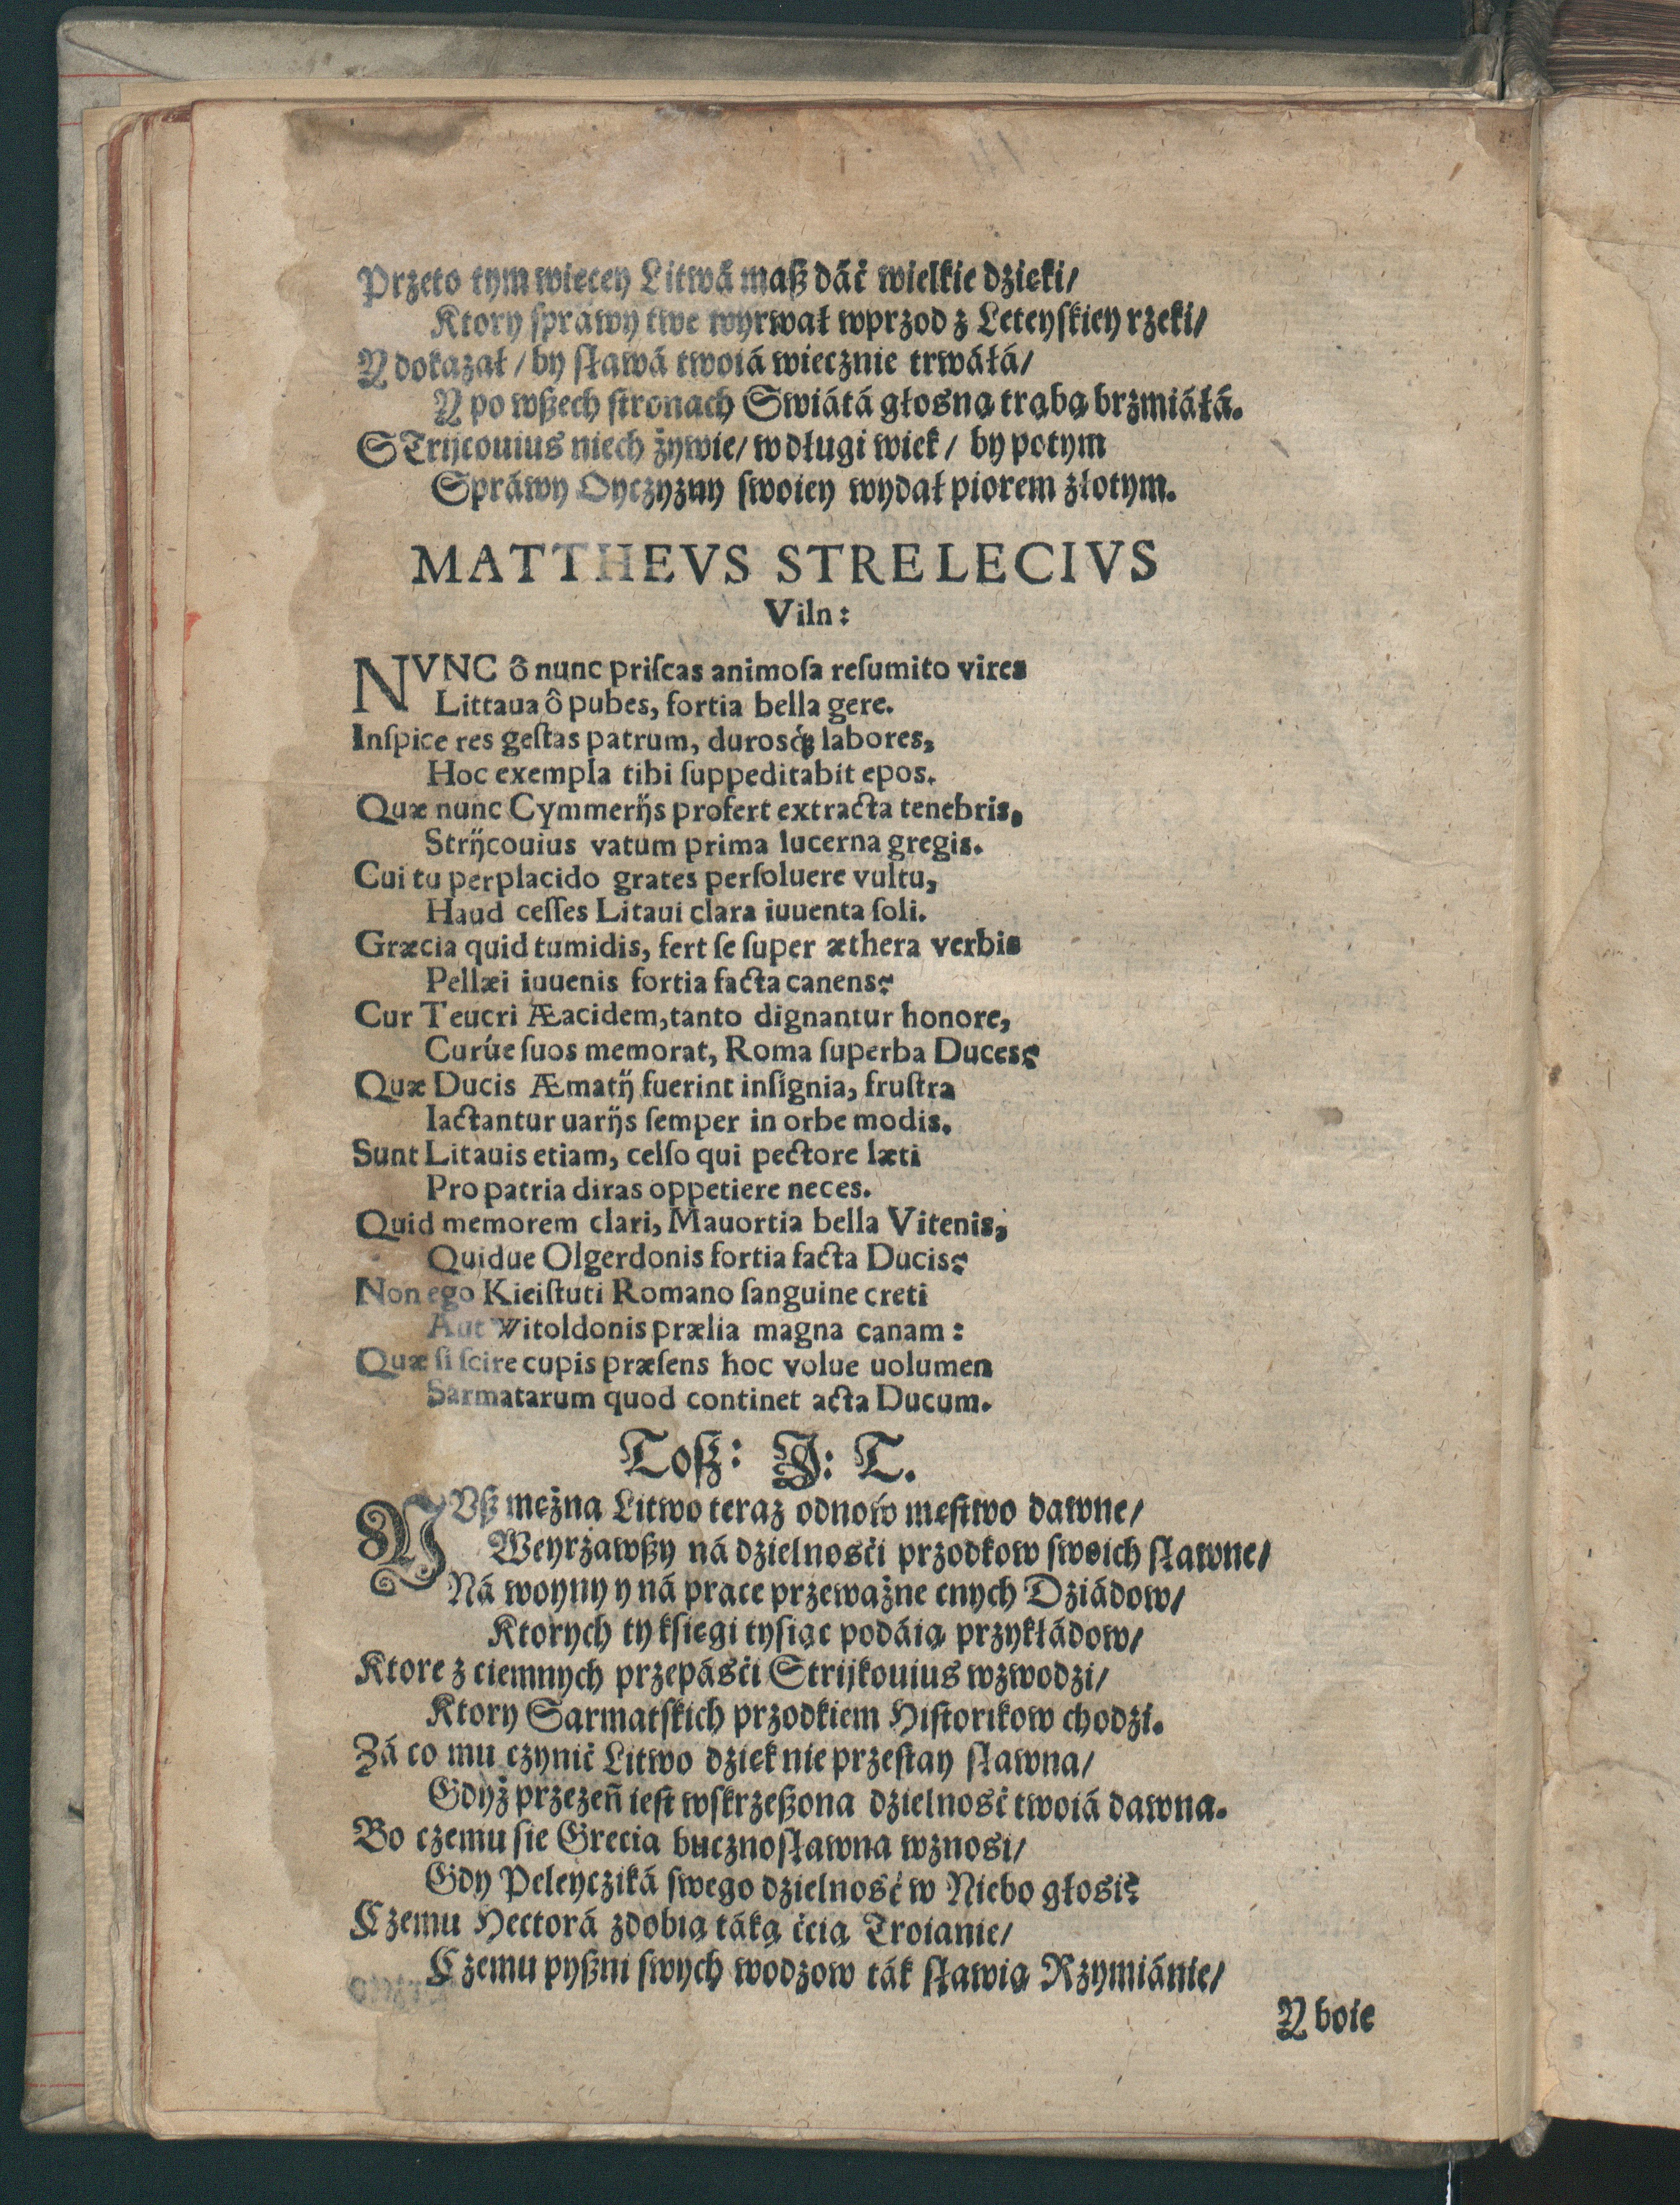 Przeto tym więcey Litwá maß dáć wielkie dzięki/
Ktory spráwy twe wyrwał wprzod z Leteyskiey rzeki/
Y dokazał / by sławá twoiá wiecznie trwáłá/
Y po wßech stronach Swiátá głosną trąbą brzmiáłá.
STrijcouius niech żywie/ w długi wiek / by potym
Spráwy Oyczyzny swoiey wydał piorem złotym.
MATTHEVS STRELECIVS
Viln:
NVNC ô nunc priſcas animoſa reſumito vires
Littaua ô pubes, fortia bella gere.
Inſpice res geſtas patrum, durosq́; labores,
Hoc exempla tibi ſuppeditabit epos.
Quæ nunc Cymmerijs profert extracta tenebris,
Strijcouius vatum prima lucerna gregis.
Cui tu perplacido grates perſoluere vultu,
Haud ceſſes Litaui clara iuuenta ſoli.
Græcia quid tumidis, fert ſe ſuper æthera verbis
Pellæi iuuenis fortia facta canens?
Cur Teucri Æacidem, tanto dignantur honore,
Curúe ſuos memorat, Roma ſuperba Duces?
Quæ Ducis Æmatij fuerint inſignia, fruſtra
Iactantur uarijs ſemper in orbe modis.
Sunt Litauis etiam, celſo qui pectore læti
Pro patria diras oppetiere neces.
Quid memorem clari, Mauortia bella Vitenis,
Quidue Olgerdonis fortia facta Ducis?
Non ego Kieiſtuti Romano ſanguine creti
Aut Witoldonis prælia magna canam:
Quæ ſi ſcire cupis præſens hoc volue uolumen
Sarmatarum quod continet acta Ducum.
Toß: J: T.
NVß mężna Litwo teraz odnow męstwo dawne/
Weyrzawßy ná dzielnosći przodkow swoich sławne/
Ná woyny y ná prace przeważne cnych Dziádow/
Ktorych ty księgi tysiąc podáią przykłádow/
Ktore z ciemnych przepásći Strijkouius wzwodzi/
Ktory Sarmatskich przodkiem Historikow chodzi.
Zá co mu czynić Litwo dzięk nie przestay sławna/
Gdyż przezeń iest wskrzeßona dzielność twoiá dawna.
Bo czemu sie Grecia bucznosławna wznosi/
Gdy Peleycziká swego dzielność w Niebo głosi?
Czemu Hectorá zdobią táką ććią Troianie/
Czemu pyßni swych wodzow ták sławią Rzymiánie/
Y boie